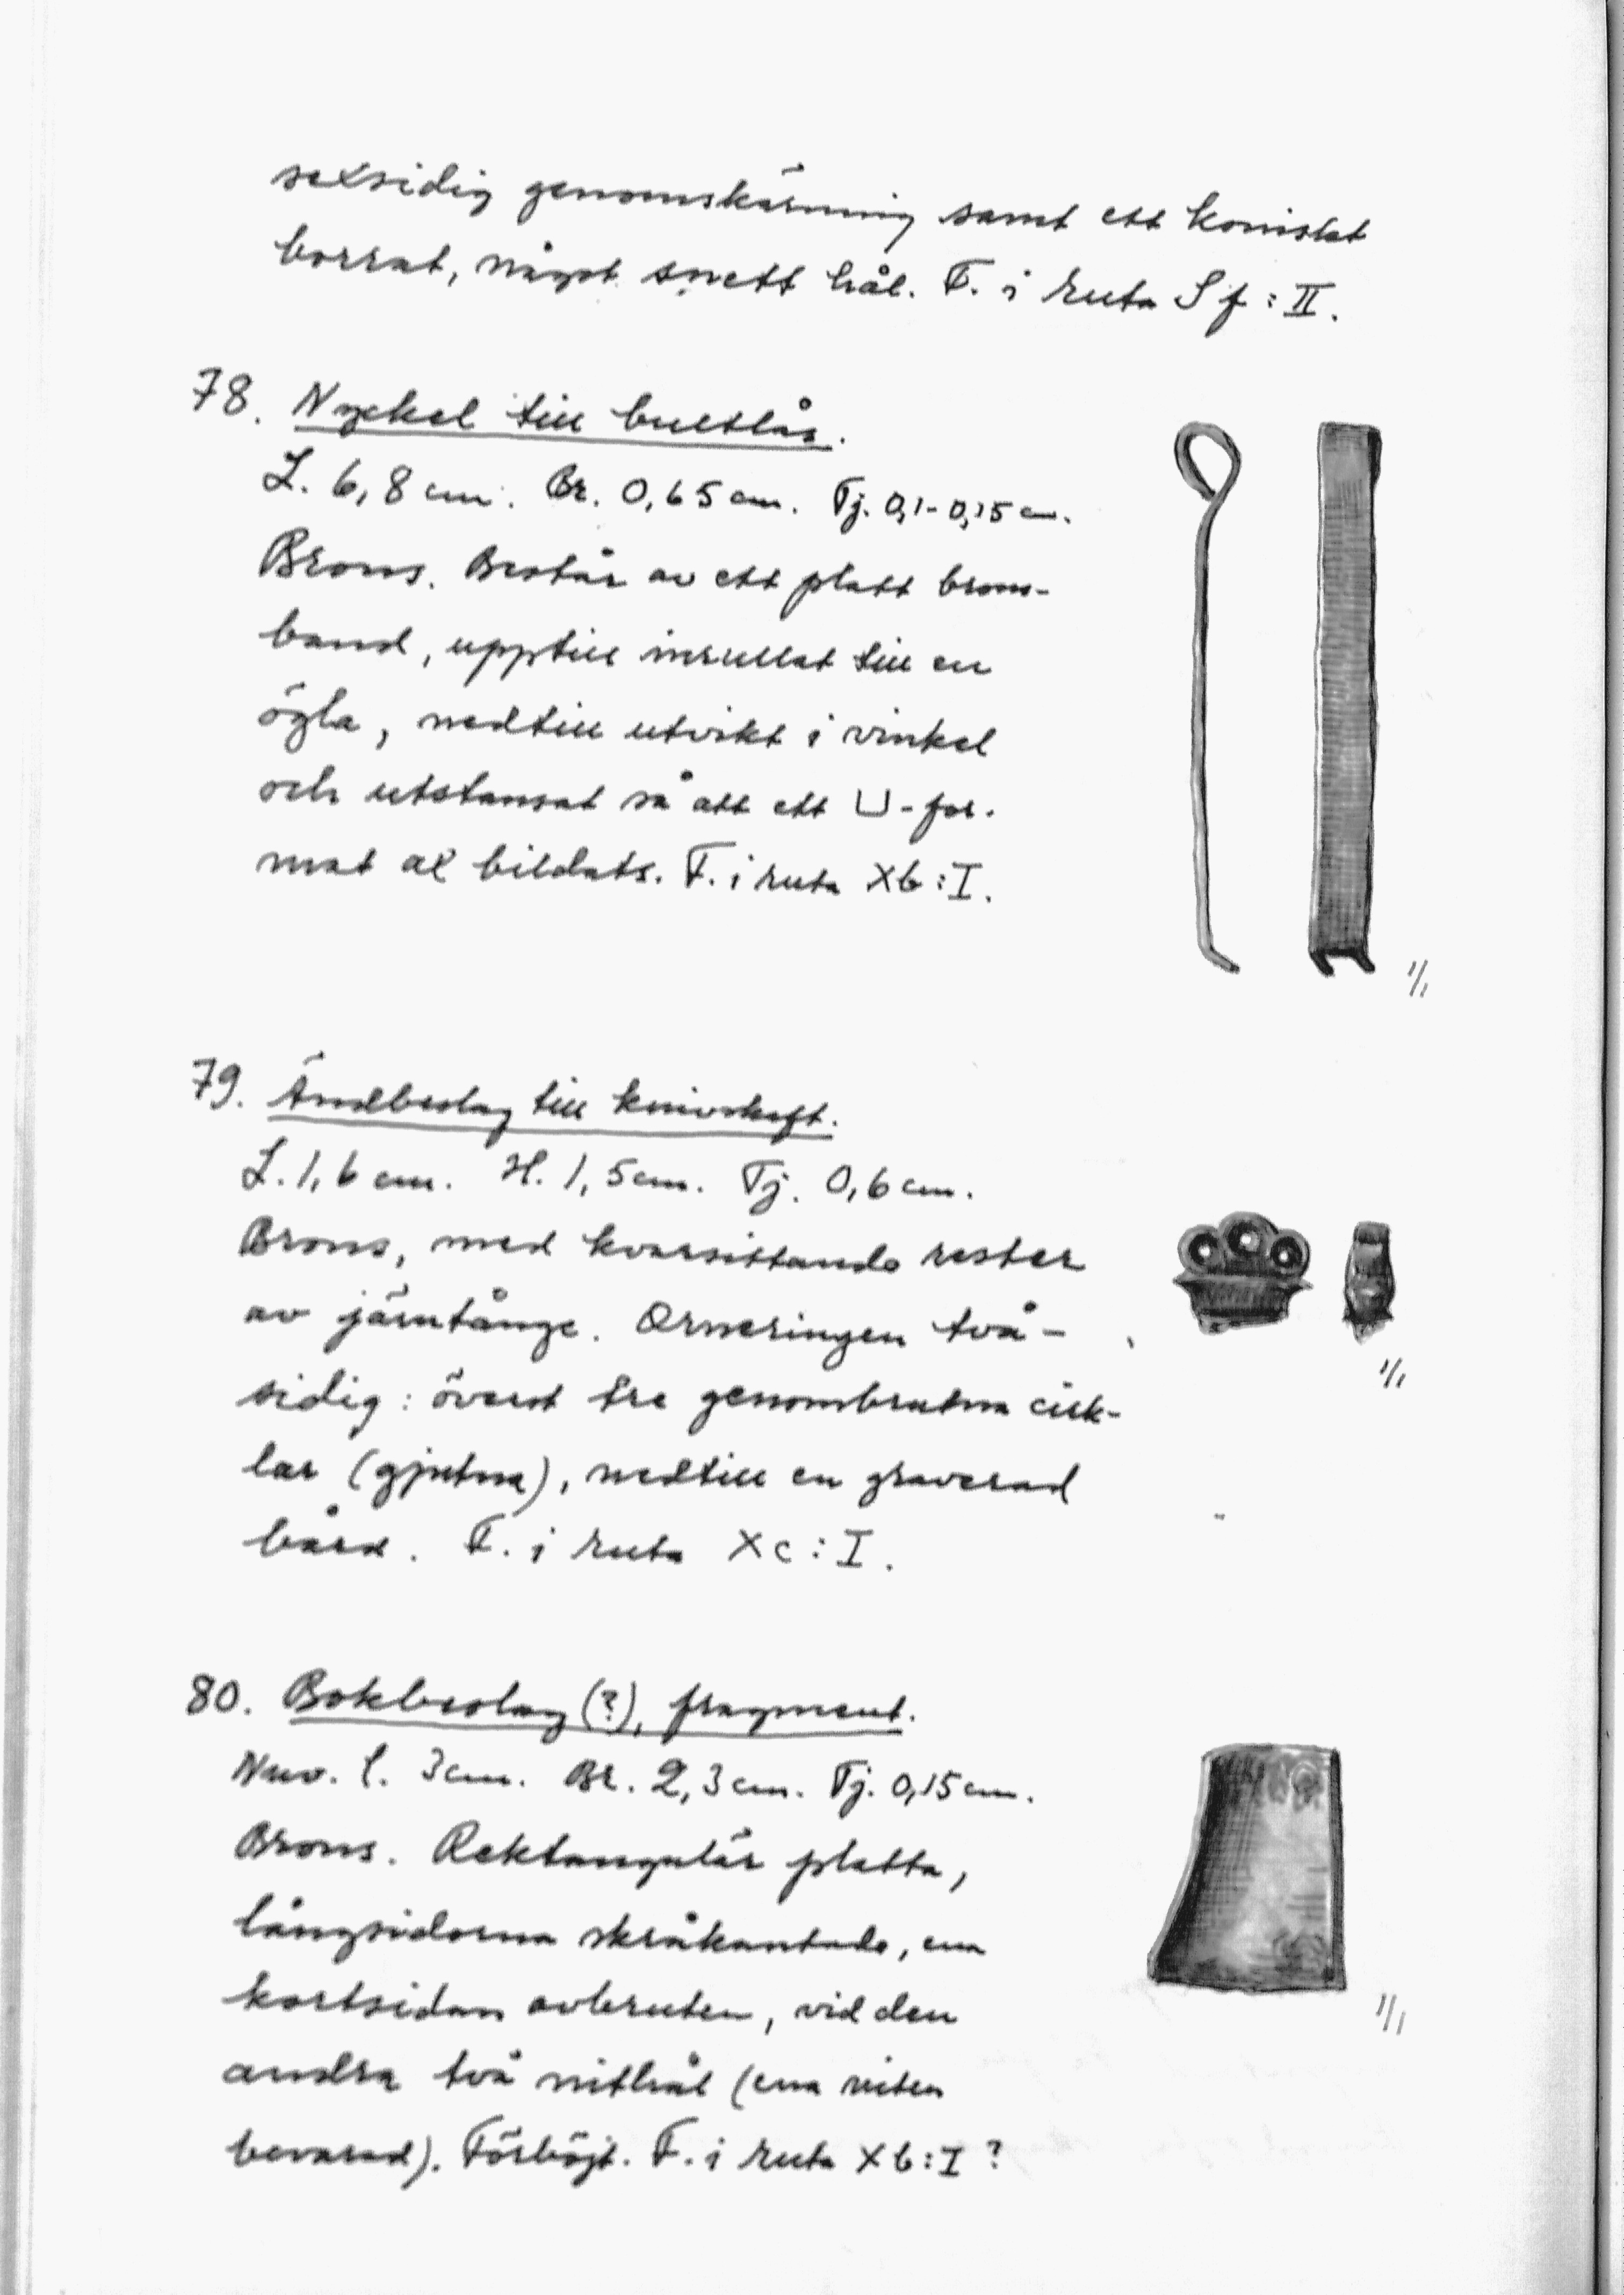 sexsidig genomskärning samt ett koniskt
borrat, något snett hål. F. i ruta Sf:II.
78. Nyckel till bultlås.
L. 6,8 cm. Br. 0,65 cm. Tj. 0,1-0,15 cm.
Brons. Består av ett platt brons-
band, upptill inrullat till en
ögla, nedtill utvikt i vinkel
och utstansat så att ett U-for-
mat ax bildats. F. i ruta Xb:I.
1/1
79. Ändbeslag till knivskaft.
L. 1,6 cm. H. 1,5 cm. Tj. 0,6 cm.
Brons, med kvarsittande rester
av järntånge. Orneringen två-
sidig: överst tre genombrutna cirk-
lar (gjutna), nedtill en graverad
bård. F. i ruta Xc:I.
1/1
80. Bokbeslag (?), fragment.
Nuv. l. 3 cm. Br. 2,3 cm. Tj. 0,15 cm.
Brons. Rektangulär platta,
långsidorna skråkantade, ena
kortsidan avbruten, vid den
andra två nithål (ena niten
bevarad). Förböjt. F. i ruta Xb:I?
1/1